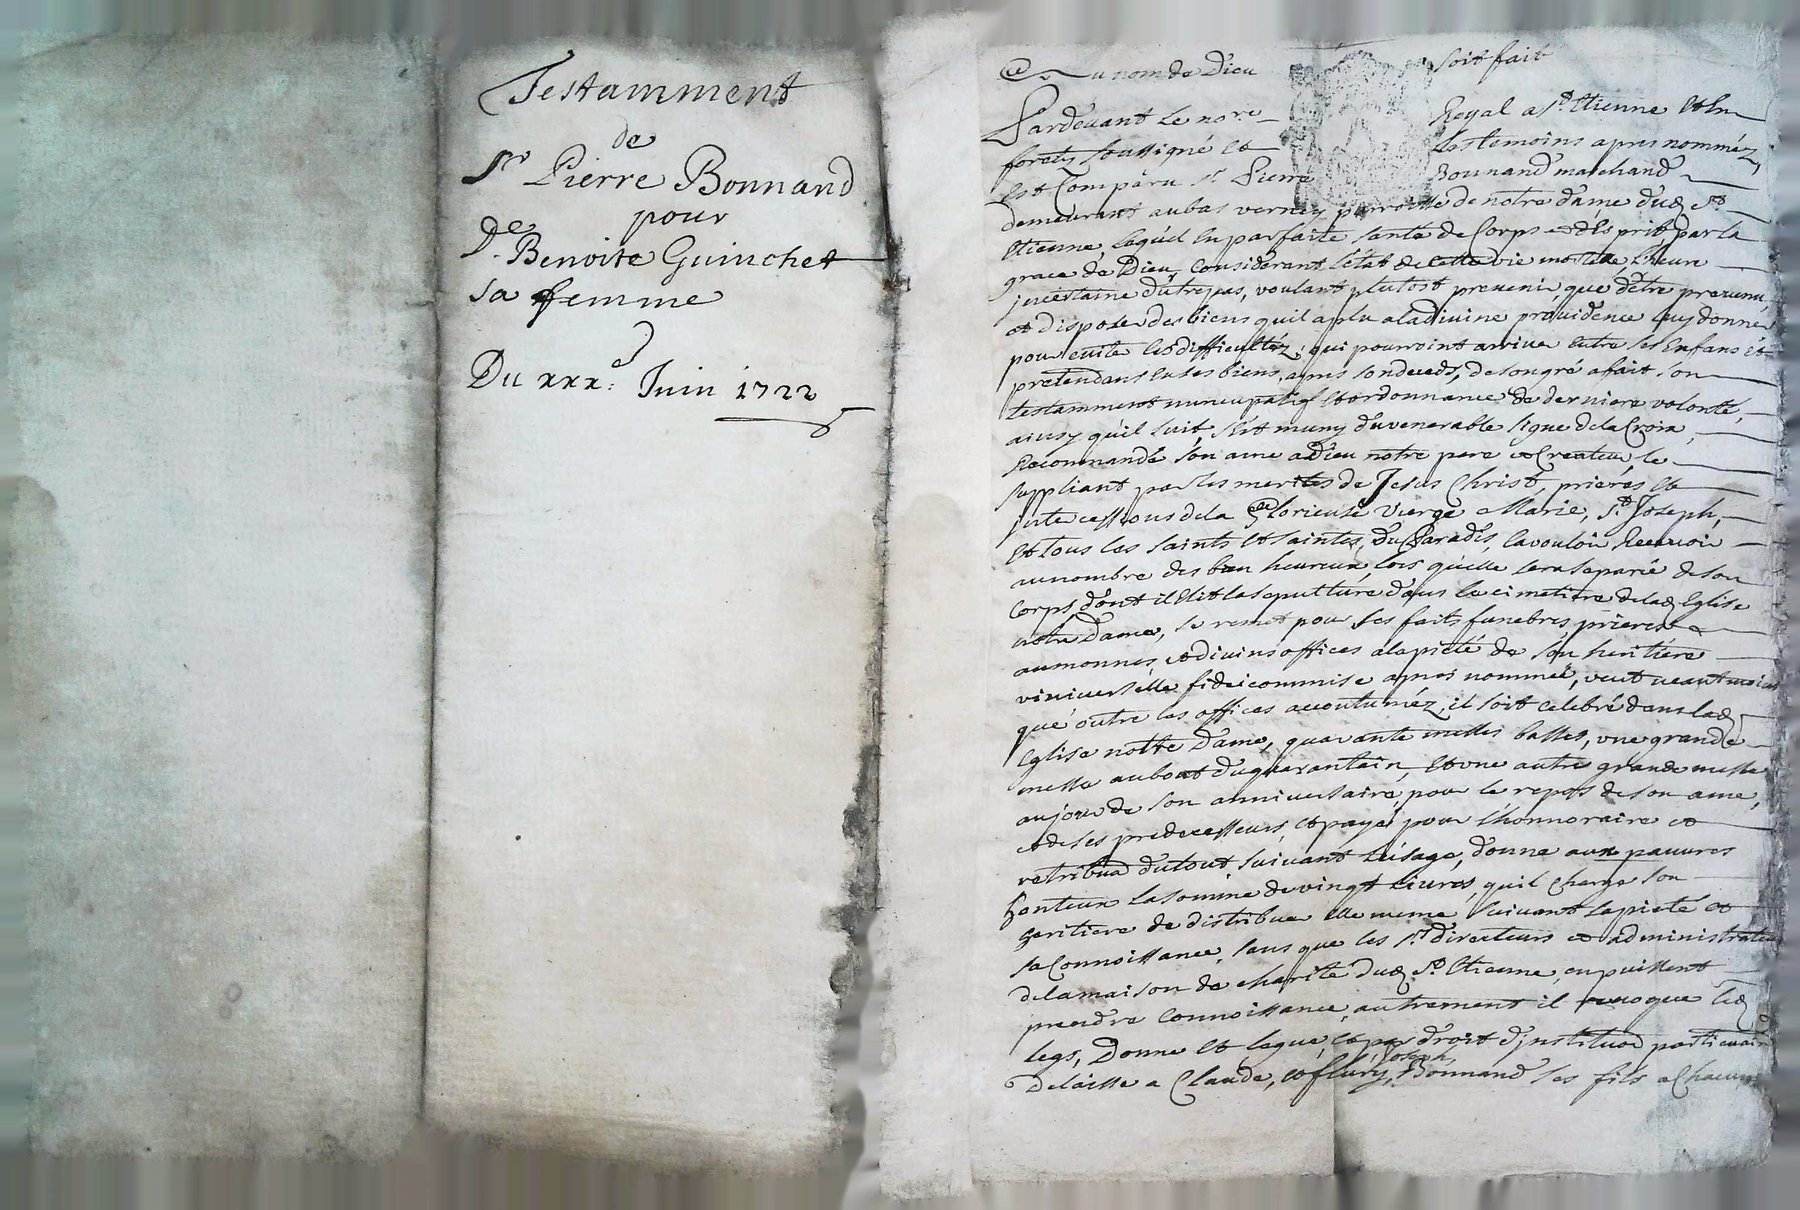 Testamment
de
Sr Pierre Bonnand
pour
De. Benoite Guinchet
sa femme
Du xxx.e Juin 1722
Au nom de Dieu soit fait
Pardevant le nore Royal a st Etienne et en
forets soussigné et les temoins apres nomméz,
Est Comparu sr Pierre Bonnand marchand
demeurant au bas vernay parroisse de notre dame dud st
Etienne, lequel en parfaite santé de Corps et d'Esprit par la
grace de Dieu, Considerant l'état de cette vie mortelle, l'heure
jncertaine du trepas, voulant plutost prevenir, que d'être prevenu,
et disposer des biens qu'il a plu a la divine providence luy donner
pour eviter les difficultéz, qui pourroint arriver entre ses Enfans et
pretendans en ses biens, apres son deceds, de son gré a fait son
testamment nuncupatif et ordonnance de derniere volonté,
ainsy qu'il suit, s'est muny du venerable signe de la Croix,
Recommandé son ame a Dieu notre pere et Createur, le
suppliant par les merites de Jesus Christ, prieres et
jntercessions de la Glorieuse Vierge Marie, st Joseph,
et tous les saints et saintes, du Paradis, la vouloir Recevoir
au nombre des bien heureux, lors qu'elle sera separée de son
Corps, dont il Elit la sepulture dans le cimetiere de lad Eglise
notre Dame, se remet pour ses faits funebres prieres
aumonnes, et divins offices a la pieté de son heritiere
vniverselle fideicommise apres nommée, veut neantmoins
que outre les offices accoutuméz, il soit celebré dans lad
Eglise notre Dame, quarante messes basses, vne grande
messe au bout du quarantain, et vne autre grande messe
au jour de son anniversaire, pour le repos de son ame,
et de ses predecesseurs, et payé pour l'honnoraire et
retribuōn du tout suivant l'usage, donne aux pauvres
honteux la somme de vingt livres, qu'il charge son
heritiere de distribuer elle meme suivant sa pieté et
sa Connoissance, sans que les srs directeurs et administrateurs
de la maison de charité dud st Etienne, en puissent
prendre Connoissance, autrement il revoque led
legs, Donne et legue, et par droit d'jnstituōn particuliere
delaisse a Claude, et fleury, Joseph Bonnand ses fils a Chacun